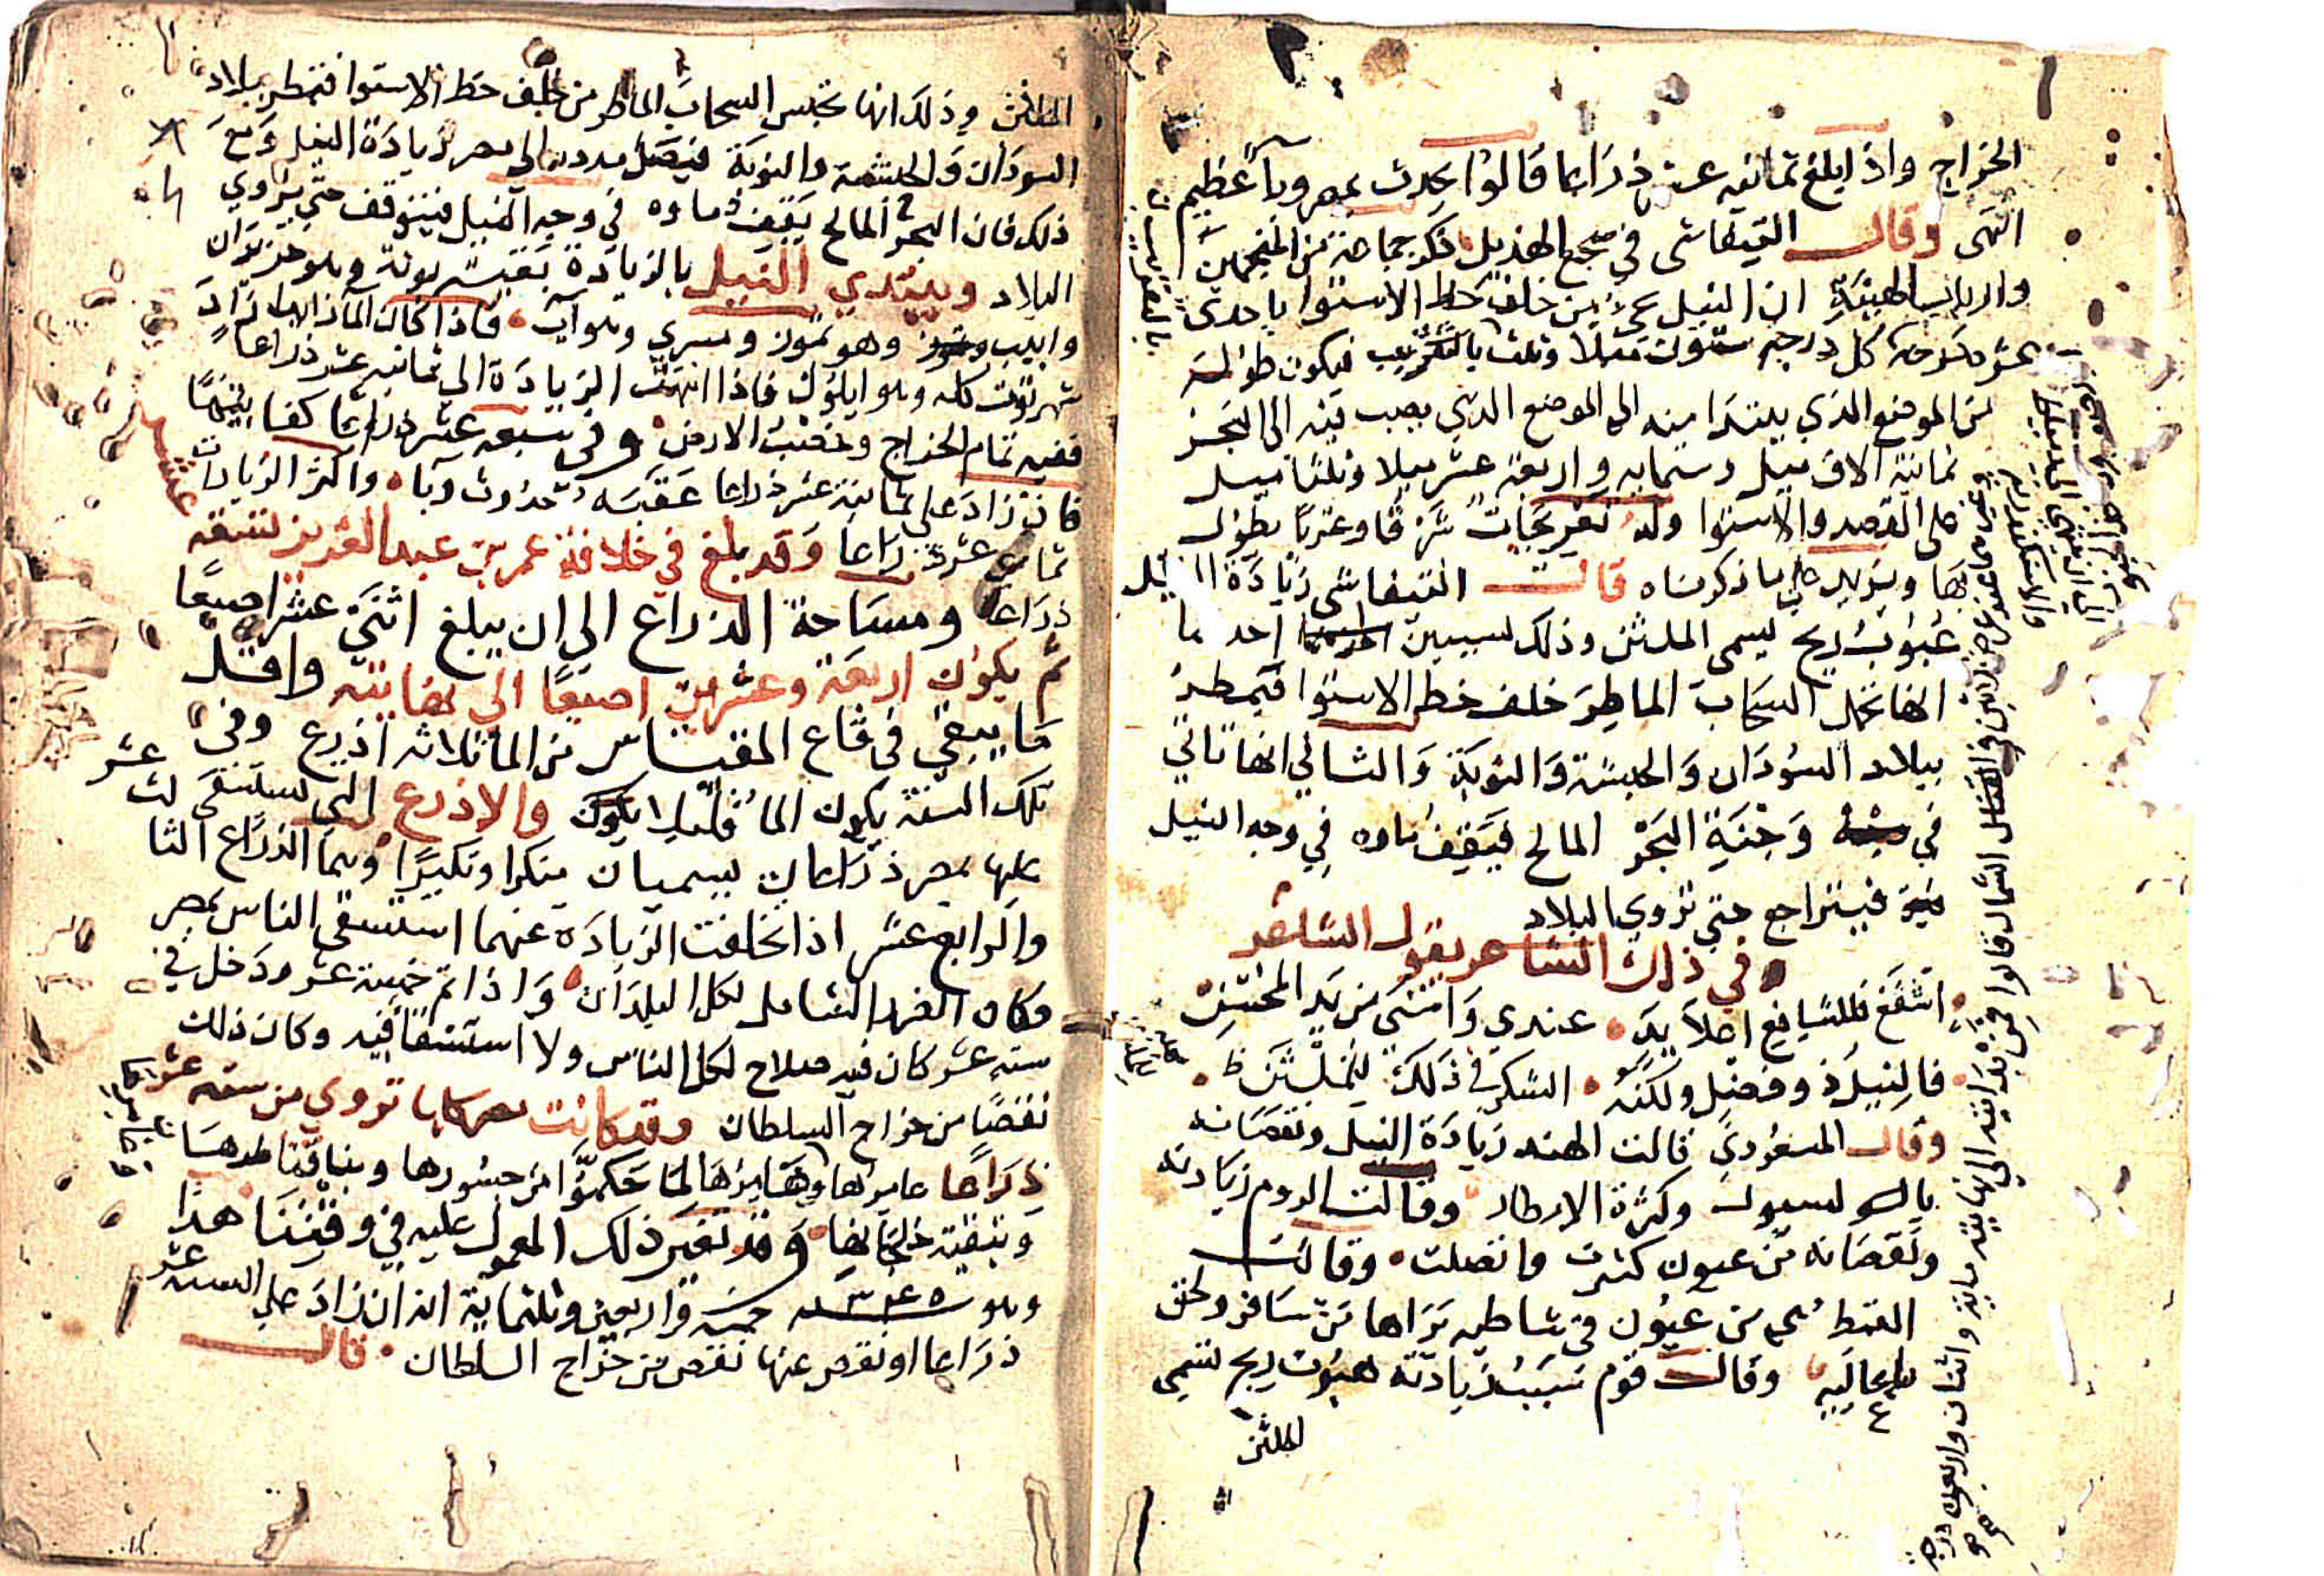 الخراج واذا بلغ ثمانيه عشر ذراعا قالوا يحدث بمصر وبأ عظيم
انتهى وقال التيفاشى في سجع الهديل ذكر جماعة من المنجمين
وارباب الهيئة ان النيل يجئ من خلف خط الاستوا باحدى
عشر درجة كل درجه ستون ميلا وثلث بالتقريب فيكون طوله
من الموضع الذي يبتدا منه الى الموضع الذي يصب فيه الى البحر
ثمانية الاف ميل وستمايه واربعة عشر ميلا وثلثا ميل
على القصد والاستوا وله تعريجات شرقا وغربا يطول
بها ويزيد على ما ذكرناه قال التيفاشى زيادة النيل
هبوب ريح يسمى الملثن وذلك لسببين احدهما
انها تحمل السحاب الماطر خلف خط الاستوا فيمطر
ببلاد السودان والحبشة والنوبة والثاني انها تاتي
في وجنة البحر المالح فيقف ماوه في وجه النيل
فيتراجع حتى تروي البلاد
وفي ذلك الشاعر يقول الشاعر
اشفع فللشافع اعلا يد عندي واسنى من يد المحسن
فالنيل ذو فضل ولكنه الشكر في ذلك للملثن
وقال المسعودي قالت الهند زيادة النيل ونقصانه
بالسيول وكثرة الامطار وقالت الروم زيادته
ونقصانه من عيون كثرت واتصلت وقالت
القبط من عيون في شاطيه يراها من سافر ولحق
باعاليه وقال قوم سبب زيادته هبوب ريح تسمى
الملثن
الملثن وذلك انها تحبس السحاب الماطر من خلف خط الاستوا فتمطر ببلاد
السودان والحبشة والنوبة فيصل مدده الى مصر لزيادة النيل ومع
ذلك فان البحر المالح يقف ماوه في وجه النيل فيتوقف حتى يروي
البلاد ويبتدي النيل بالزيادة بقية بونه وهو حزيران
وابيب وهو تموز ومسري وهو آب فاذا كان الما زايدا زاد
شهر توت كله وهو ايلول فاذا انتهت الزيادة الى ثمانيه عشر ذراعا
ففيه تمام الخراج وخصب الارض وفي سبعه عشر ذراعا كفا بينهما
فان زاد على ثمانية عشر ذراعا عقبه حدوث وبا واكثر الزيادات
ثماني عشرة ذراعا وقد بلغ في خلافة عمر بن عبد العزيز تسعه عشر
ذراعا ومساحة الذراع الى ان يبلغ اثني عشر اصبعا
ثم يكون اربعة وعشرين اصبعا الى نهايته واقل
ما يبقى في قاع المقياس من الما ثلاثه اذرع وفي
تلك السنة يكون الما قليلا والاذرع التي تستسقى
عليها بمصر ذراعان يسميان منكرا ونكيرا وهما الذراع الثالث عشر
والرابع عشر اذا تخلفت الزيادة عنهما استسقى الناس بمصر
وكان الضرر الشامل لكل البلدان واذا تم خمسة عشر ودخل في
سته عشر كان فيه صلاح لكل الناس ولا استسقا فيه وكان ذلك
نقصا من خراج السلطان وقد كانت مصر كلها تروي من سته عشر
ذراعا عامرها وغامرها لما حكموا من جسورها وبنا قناطرها
وتنقية خلجانها وقد تغير ذلك المعمول عليه في وقتنا هذا
وهو سنه ٣٤٥ خمسة واربعين وثلثماية انه ان زاد على الستة عشر
ذراعا او نقص عنها نقص من خراج السلطان قال